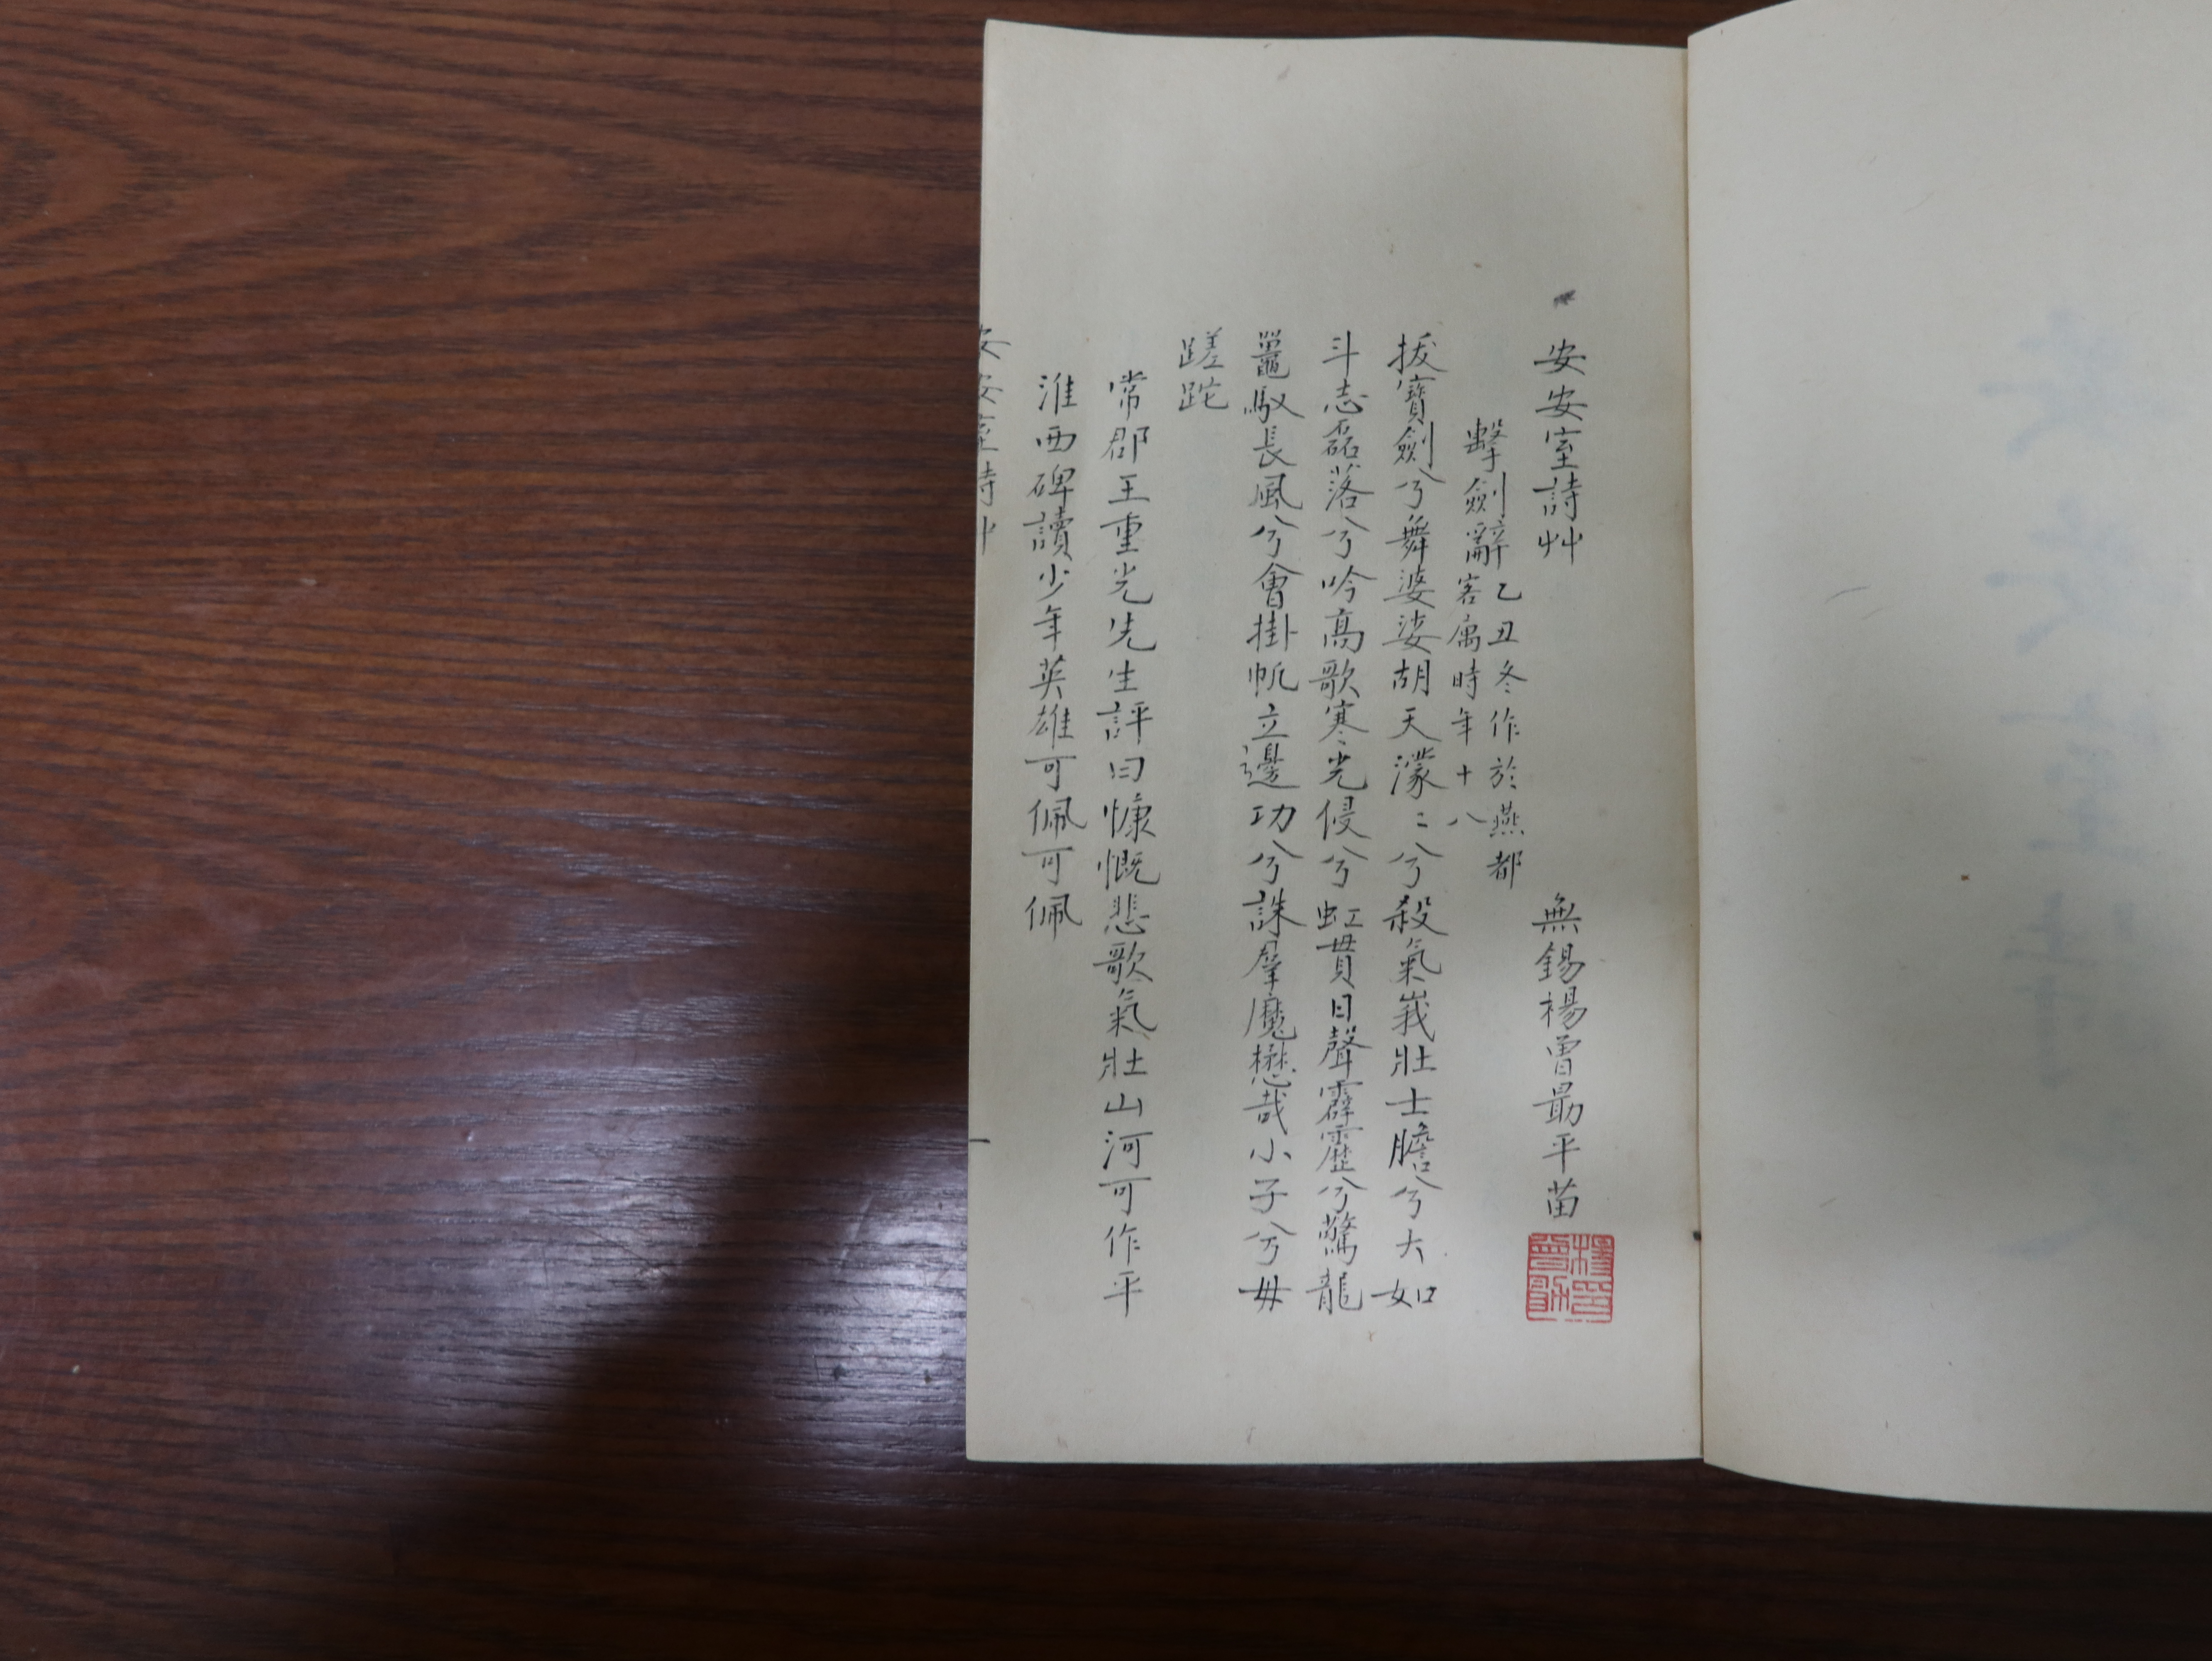 安安室詩艸
無錫楊曾勖平苗
擊劍辭
乙丑冬作於燕都
客寓時年十八
拔寶劍兮舞婆娑胡天濛〻兮殺氣峩壯士膽兮大如
斗志磊落兮吟高歌寒光侵兮虹貫日聲霹靂兮驚龍
鼍馭長風兮會掛帆立邊功兮誅羣魔懋哉小子兮毋
蹉跎
常郡王重光先生評曰慷慨悲歌氣壯山河可作平
淮西碑讀少年英雄可佩可佩
安安室詩艸
一